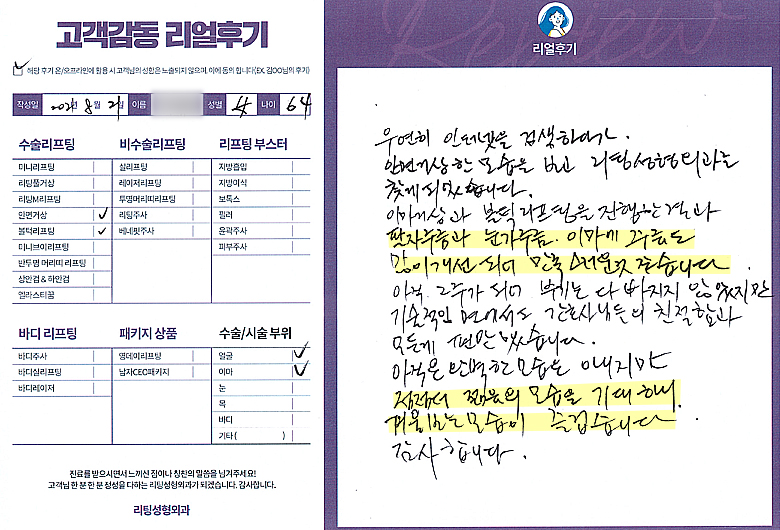 고객감동 리얼후기
해당 후기 온/오프라인에 활용 시 고객님의 성함은 노출되지 않으며, 이에 동의 합니다(EX. 김OO님의 후기)
작성일 2021년 8월 21 이름 성별 女 나이 64
수술리프팅
미니리프팅
리팅풀거상
리팅M리프팅
안면거상 ✓
블럭리프팅 ✓
미니브이리프팅
반투명 머리띠 리프팅
상안검 & 하안검
엘라스티꿈
비수술리프팅
실리프팅
레이저리프팅
투명머리띠리프팅
리팅주사
베네핏주사
리프팅 부스터
지방흡입
지방이식
보톡스
필러
윤곽주사
피부주사
바디 리프팅
바디주사
바디실리프팅
바디레이저
패키지 상품
영데이리프팅
남자CEO패키지
수술/시술 부위
얼굴 ✓
이마 ✓
눈
목
바디
기타 ( )
진료를 받으시면서 느끼신 점이나 칭찬의 말씀을 남겨주세요!
고객님 한 분 한 분 정성을 다하는 리팅성형외과가 되겠습니다. 감사합니다.
리팅성형외과
Review
리얼후기
우연히 인터넷을 검색하다가.
안면거상 한 모습을 보고 리팅성형외과를
찾게 되었습니다.
이마거상과 블럭리프팅을 진행한 결과
팔자주름과 눈가주름. 이마에 주름도
많이 개선 되어 만족스러운것 같습니다
아직 2주가 되어 붓기는 다 빠지지 않았지만
기술적인 면에서도 간호사님들의 친절함과
모든게 편안했습니다.
아직은 완벽한 모습은 아니지만
점점더 젊음의 모습을 기대하며
거울보는 모습이 즐겁습니다
감사합니다.